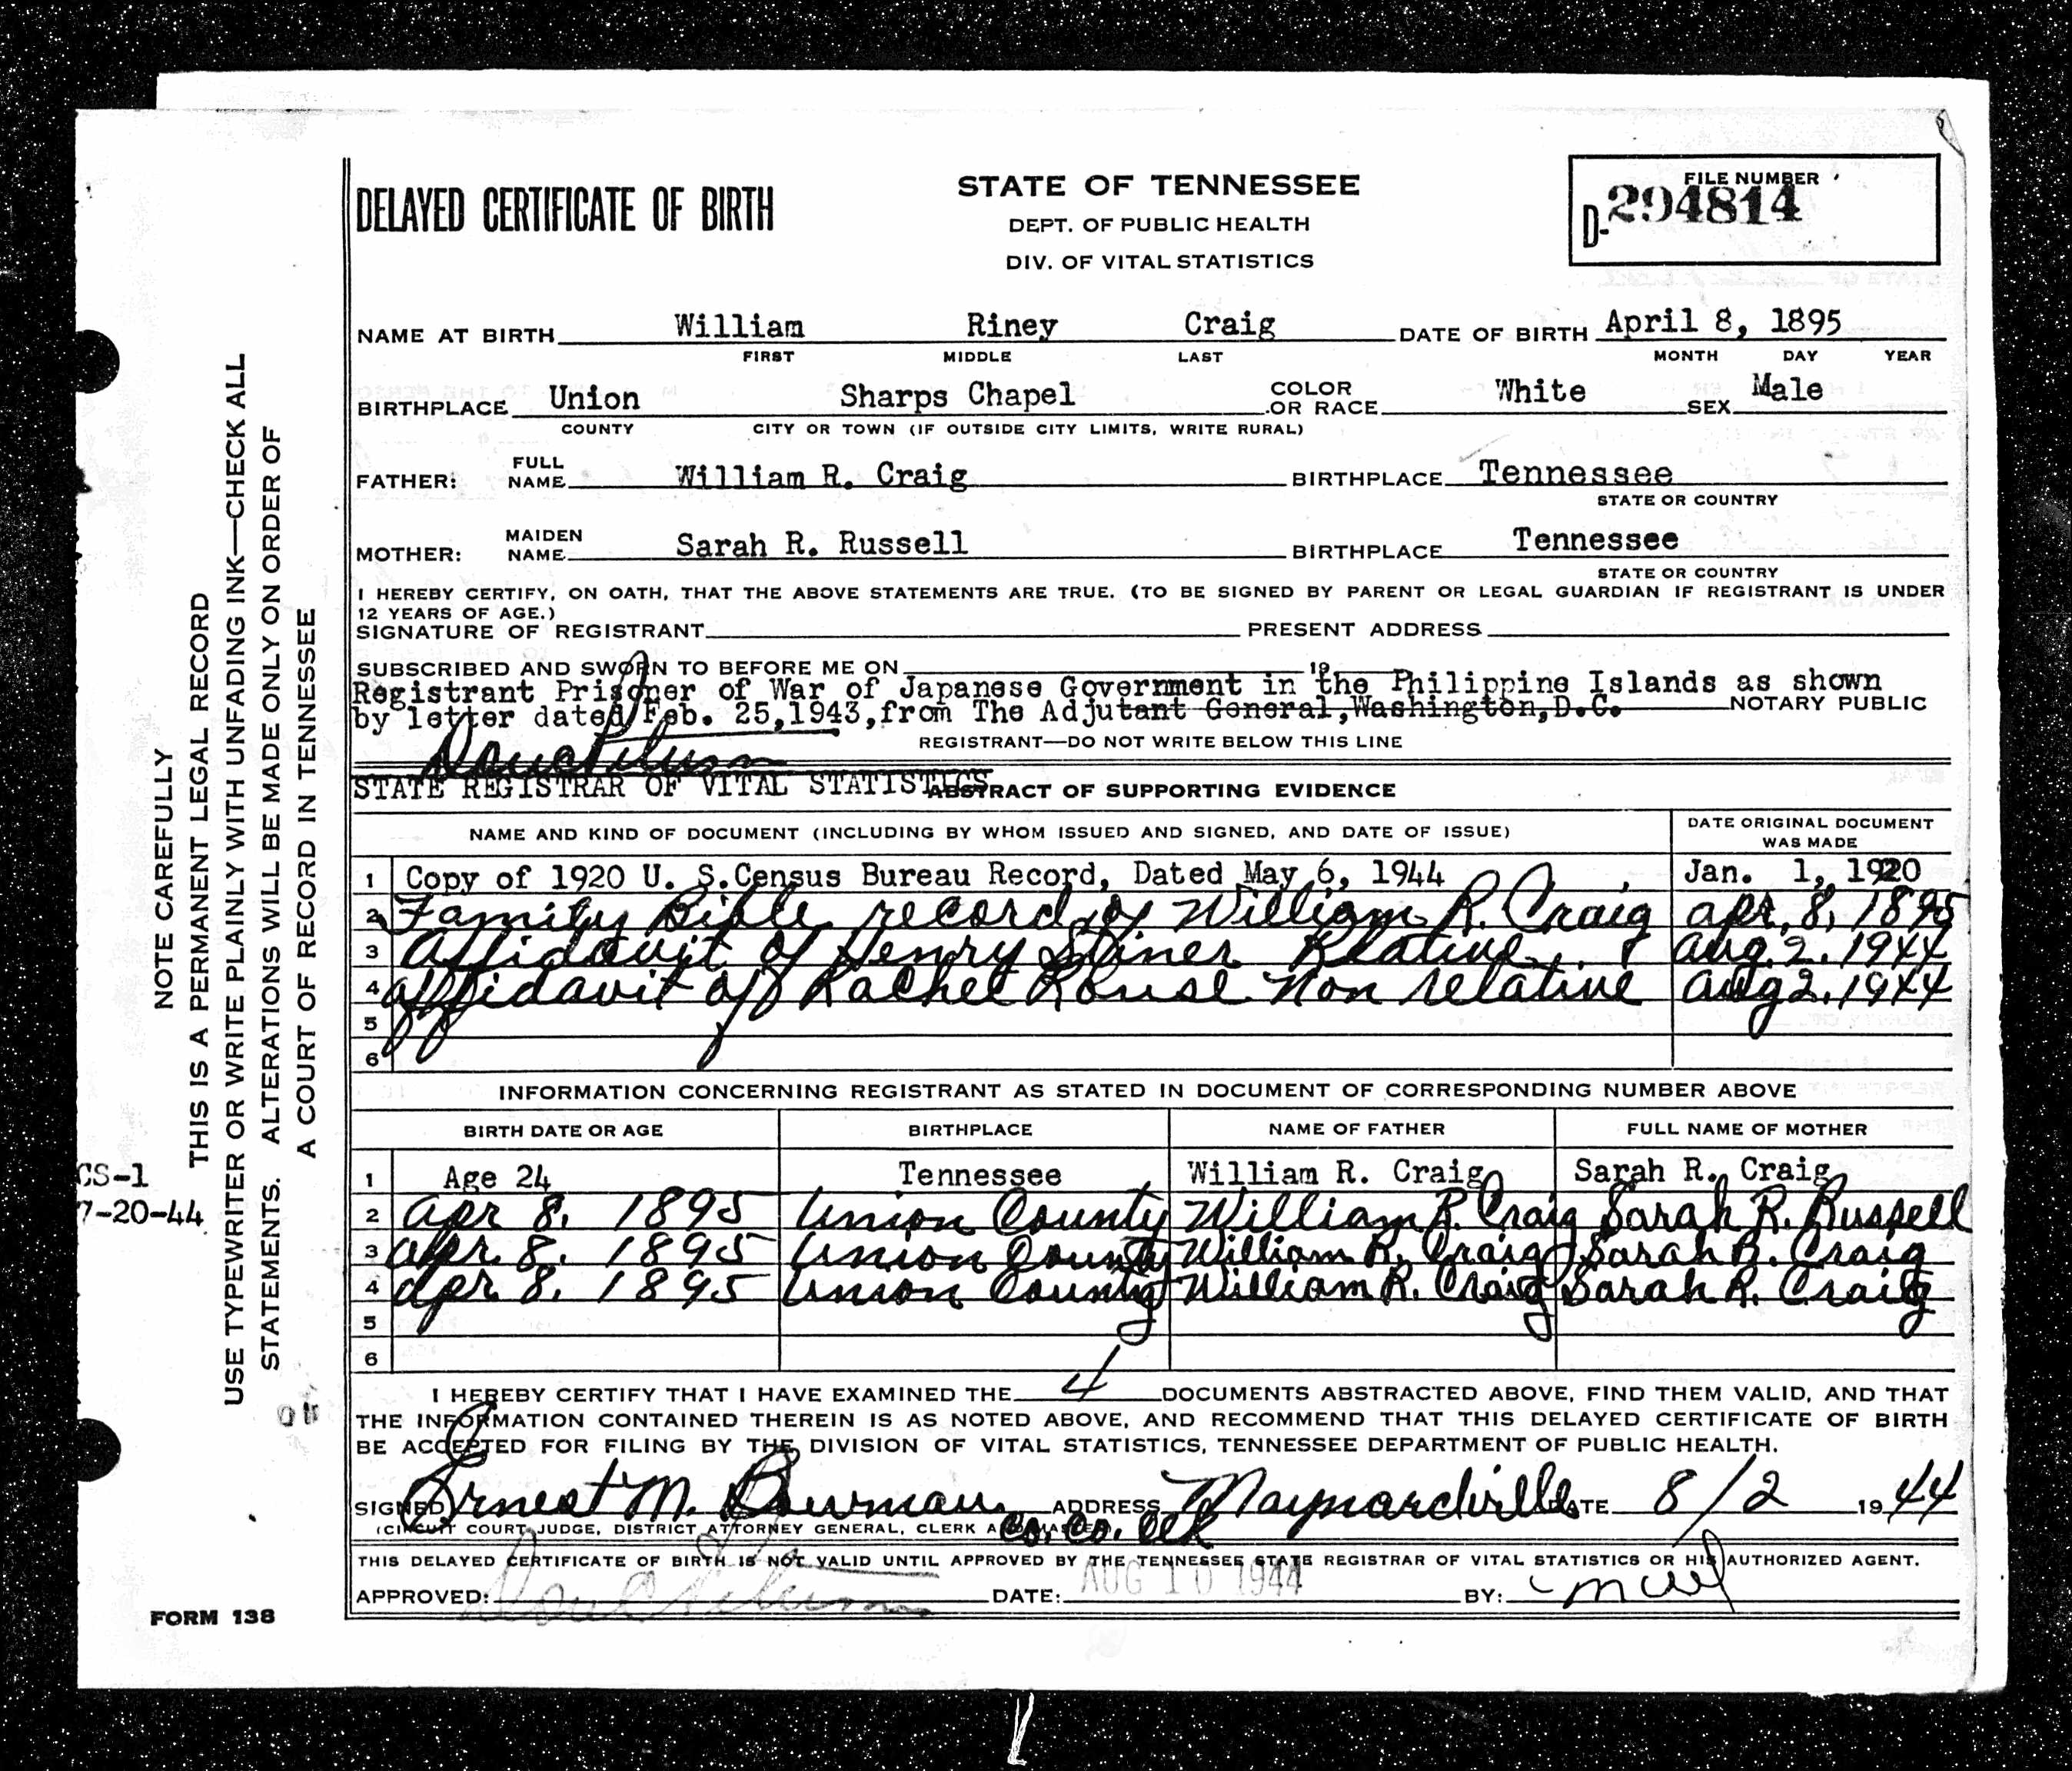 DELAYED CERTIFICATE OF BIRTH
STATE OF TENNESSEE
DEPT. OF PUBLIC HEALTH
DIV. OF VITAL STATISTICS
FILE NUMBER
D-294814
NAME AT BIRTH William Riney Craig DATE OF BIRTH April 8, 1895
FIRST MIDDLE LAST MONTH DAY YEAR
BIRTHPLACE Union Sharps Chapel COLOR OR RACE White SEX Male
COUNTY CITY OR TOWN (IF OUTSIDE CITY LIMITS, WRITE RURAL)
FATHER: FULL NAME William R. Craig BIRTHPLACE Tennessee
STATE OR COUNTRY
MOTHER: MAIDEN NAME Sarah R. Russell BIRTHPLACE Tennessee
STATE OR COUNTRY
I HEREBY CERTIFY, ON OATH, THAT THE ABOVE STATEMENTS ARE TRUE. (TO BE SIGNED BY PARENT OR LEGAL GUARDIAN IF REGISTRANT IS UNDER
12 YEARS OF AGE.)
SIGNATURE OF REGISTRANT PRESENT ADDRESS
SUBSCRIBED AND SWORN TO BEFORE ME ON 19
Registrant Prisoner of War of Japanese Government in the Philippine Islands as shown
by letter dated Feb. 25,1943,from The Adjutant General,Washington,D.C. NOTARY PUBLIC
REGISTRANT—DO NOT WRITE BELOW THIS LINE
STATE REGISTRAR OF VITAL STATISTICS
ABSTRACT OF SUPPORTING EVIDENCE
NAME AND KIND OF DOCUMENT (INCLUDING BY WHOM ISSUED AND SIGNED, AND DATE OF ISSUE) DATE ORIGINAL DOCUMENT WAS MADE
1 Copy of 1920 U. S.Census Bureau Record, Dated May 6, 1944 Jan. 1, 1920
2 Family Bible record of William R. Craig Apr. 8, 1895
3 Affidavit of Henry Stiner Relative Aug. 2. 1944
4 Affidavit of Rachel Rouse Non relative Aug 2. 1944
5
6
INFORMATION CONCERNING REGISTRANT AS STATED IN DOCUMENT OF CORRESPONDING NUMBER ABOVE
BIRTH DATE OR AGE BIRTHPLACE NAME OF FATHER FULL NAME OF MOTHER
1 Age 24 Tennessee William R. Craig Sarah R. Craig
2 Apr 8. 1895 Union County William R. Craig Sarah R. Russell
3 Apr. 8. 1895 Union County William R. Craig Sarah R. Craig
4 Apr 8. 1895 Union County William R. Craig Sarah R. Craig
5
6
I HEREBY CERTIFY THAT I HAVE EXAMINED THE 4 DOCUMENTS ABSTRACTED ABOVE, FIND THEM VALID, AND THAT
THE INFORMATION CONTAINED THEREIN IS AS NOTED ABOVE, AND RECOMMEND THAT THIS DELAYED CERTIFICATE OF BIRTH
BE ACCEPTED FOR FILING BY THE DIVISION OF VITAL STATISTICS, TENNESSEE DEPARTMENT OF PUBLIC HEALTH.
SIGNED Ernest M. Bowman ADDRESS Maynardville DATE 8/2 1944
(CIRCUIT COURT JUDGE, DISTRICT ATTORNEY GENERAL, CLERK Co. Co. Clk
THIS DELAYED CERTIFICATE OF BIRTH IS NOT VALID UNTIL APPROVED BY THE TENNESSEE STATE REGISTRAR OF VITAL STATISTICS OR HIS AUTHORIZED AGENT.
APPROVED: DATE: AUG 10 1944 BY:
NOTE CAREFULLY
THIS IS A PERMANENT LEGAL RECORD
USE TYPEWRITER OR WRITE PLAINLY WITH UNFADING INK—CHECK ALL
STATEMENTS. ALTERATIONS WILL BE MADE ONLY ON ORDER OF
A COURT OF RECORD IN TENNESSEE
CS-1
7-20-44
FORM 138